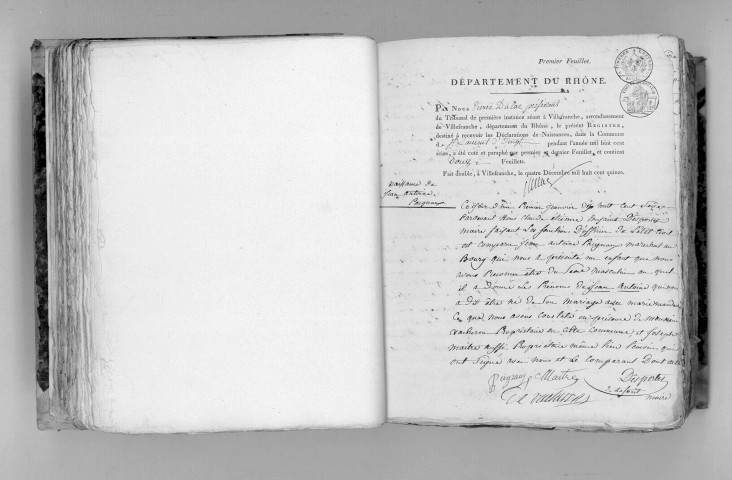 Premier Feuillet.
DÉPARTEMENT DU RHÔNE.
PAR NOUS président
du Tribunal de première instance séant à Villefranche, arrondissement
de Villefranche, département du Rhône, le présent REGISTRE,
destiné à recevoir les Déclarations de Naissances, dans la Commune
de St Laurent d'Oingt pendant l'année mil huit cent
seize, a été coté et paraphé sur premier et dernier Feuillet, et contient
Douze Feuillets.
Fait double, à Villefranche, le quatre Décembre mil huit cent quinze.
naissance de
jean antoine
Ce jour d'hui Premier janvier dix huit cent seize
Pardevant Nous claude étienne Desportes
maire faisant les fonctions D'officier de L'état Civil
est comparu jean antoine marechal au
Bourg qui nous a présenté un enfant que nous
avons Reconnu être du Sexe masculin au quel
il a Donné Les Prénoms de jean Antoine qu'il nous
a Dit être né de Son mariage avec marie
Ce que nous avons constaté en présence de
Propriétaire en cette commune, et joseph
maitre aussi Propriétaire même lieu qui
ont Signé avec nous et Le comparant Dont acte
Maitre Desportes
maire